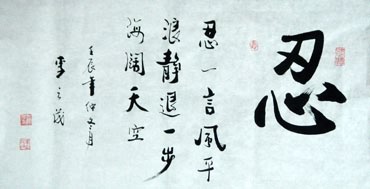 忍
忍一言風平
浪靜退一步
海闊天空
壬辰年仲冬月